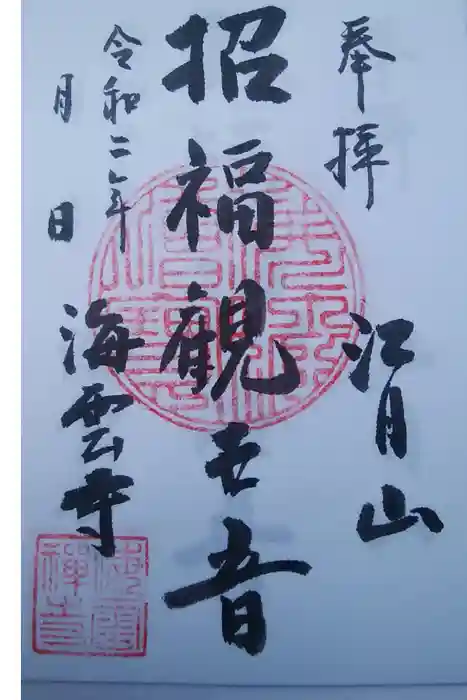 奉拝
江月山
招福観世音
令和二年
月 日
海雲寺